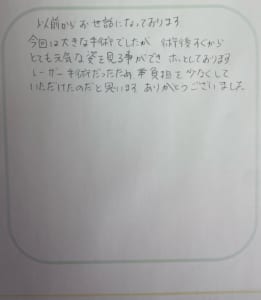 以前からお世話になっております
今回は大きな手術でしたが 術後すぐから
とても元気な姿を見る事ができ ホッとしております
レーザー手術だったため 負担を少なくして
いただけたのだと思います ありがとうございました